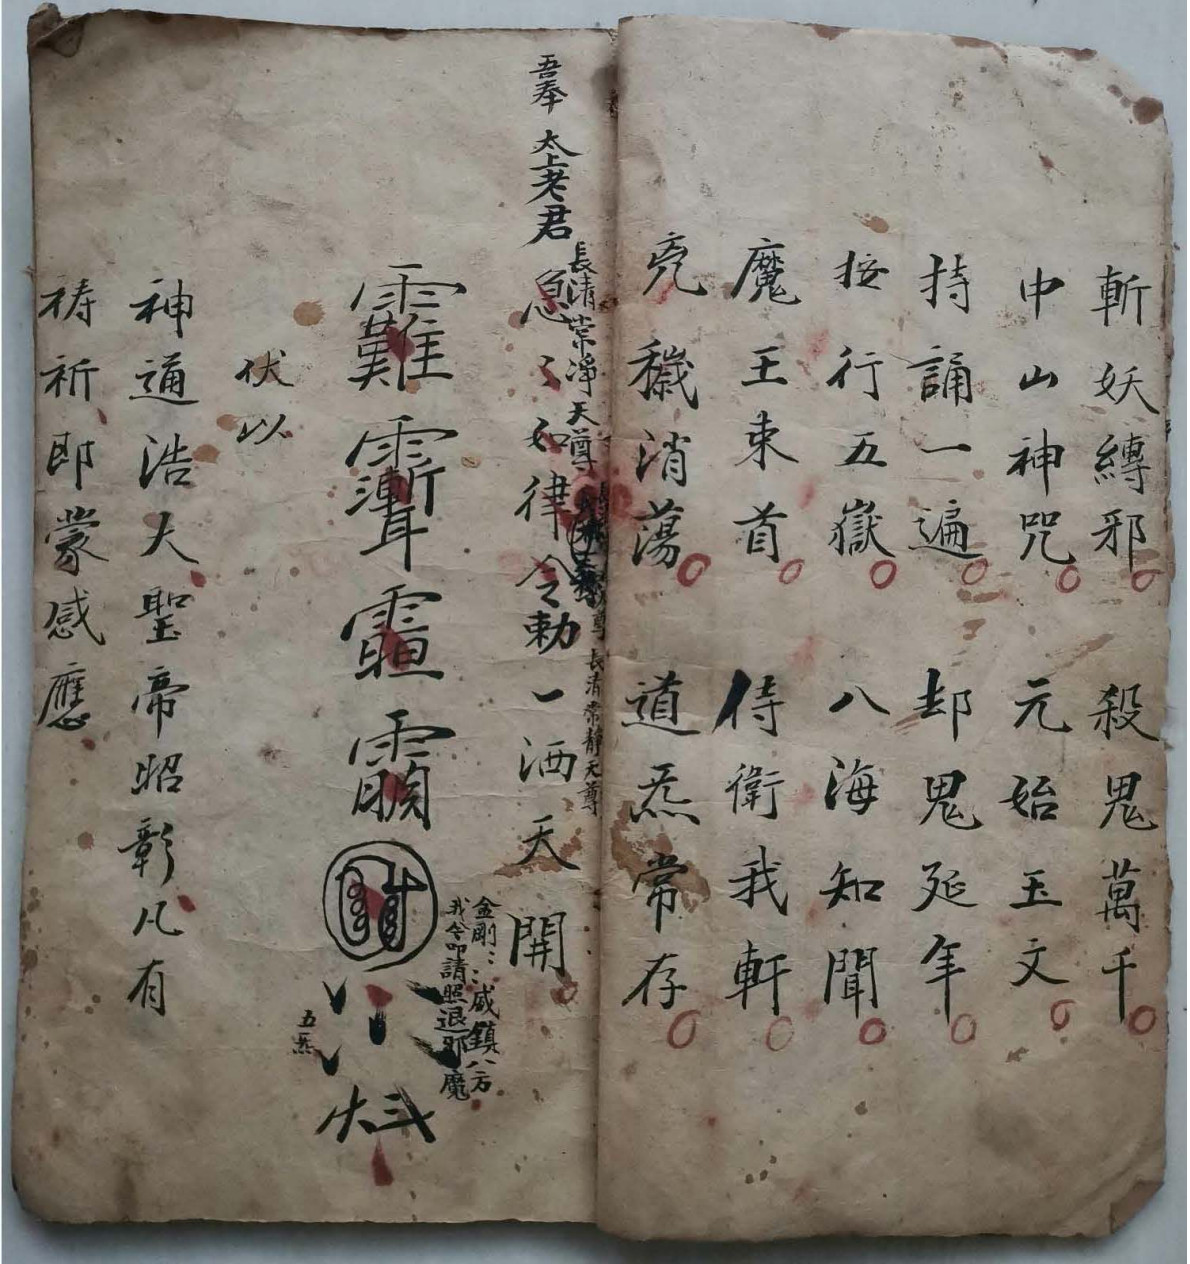 斬妖縛邪 殺鬼萬千
中山神咒 元始玉文
持誦一遍 却鬼延年
按行五嶽 八海知聞
魔王束首 侍衛我軒
兇穢消蕩 道炁常存
長清常淨天尊
長清常靜天尊
吾奉太上老君急〻如律令勅一洒天開
金剛〻〻威鎮八方
我今叩請照退邪魔
五炁
伏以
神通浩大聖帝昭彰凡有
祷祈即蒙感應